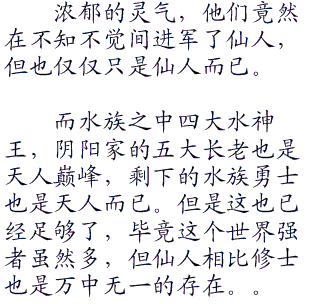 浓郁的灵气，他们竟然
在不知不觉间进军了仙人，
但也仅仅只是仙人而已。
而水族之中四大水神
王，阴阳家的五大长老也是
天人巅峰，剩下的水族勇士
也是天人而已。但是这也已
经足够了，毕竟这个世界强
者虽然多，但仙人相比修士
也是万中无一的存在。。